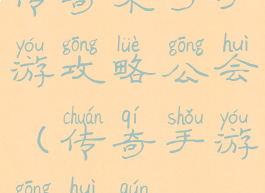 yóu gōng lüè gōng huì
游攻略公会
chuán qí shǒu yóu
(传奇手游
gōng huì qún